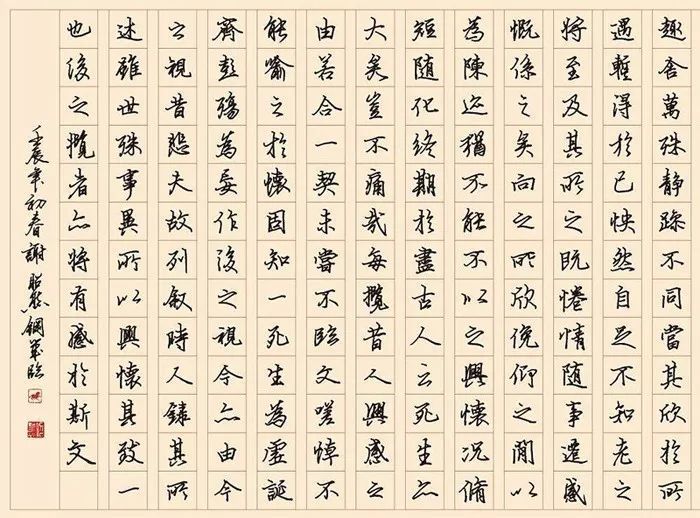 趣舍萬殊静躁不同當其欣於所
遇暫得於己快然自足不知老之
將至及其所之既惓情随事遷感
慨係之矣向之所欣俛仰之間以
為陳迹猶不能不以之興懷况脩
短随化終期於盡古人云死生亦
大矣豈不痛哉每攬昔人興感之
由若合一契未嘗不臨文嗟悼不
能喻之於懷固知一死生為虛誕
齊彭殤為妄作後之視今亦由今
之視昔悲夫故列叙時人録其所
述雖世殊事異所以興懷其致一
也後之攬者亦將有感於斯文
壬辰年初春謝昭然鋼筆臨